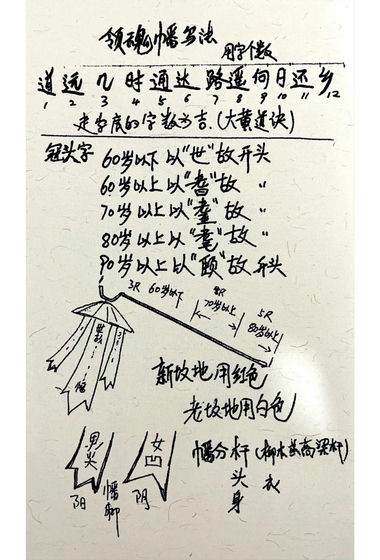 领魂幡写法
用字个数
道远几时通达路遥何日还乡
1 2 3 4 5 6 7 8 9 10 11 12
走字底的字数为吉.(大黄道诀)
冠头字 60岁以下以"世"故开头
60岁以上以"耆"故 〃
70岁以上以"耋"故 〃
80岁以上以"耄"故 〃
90岁以上以"颐"故 开头
3尺 60岁以下
4尺 70岁以上
5尺 80岁以上
新坟地用红色
老坟地用白色
男尖
女凹
阳
幡脚
阴
幡分 杆(柳木或高粱杆)
头
身